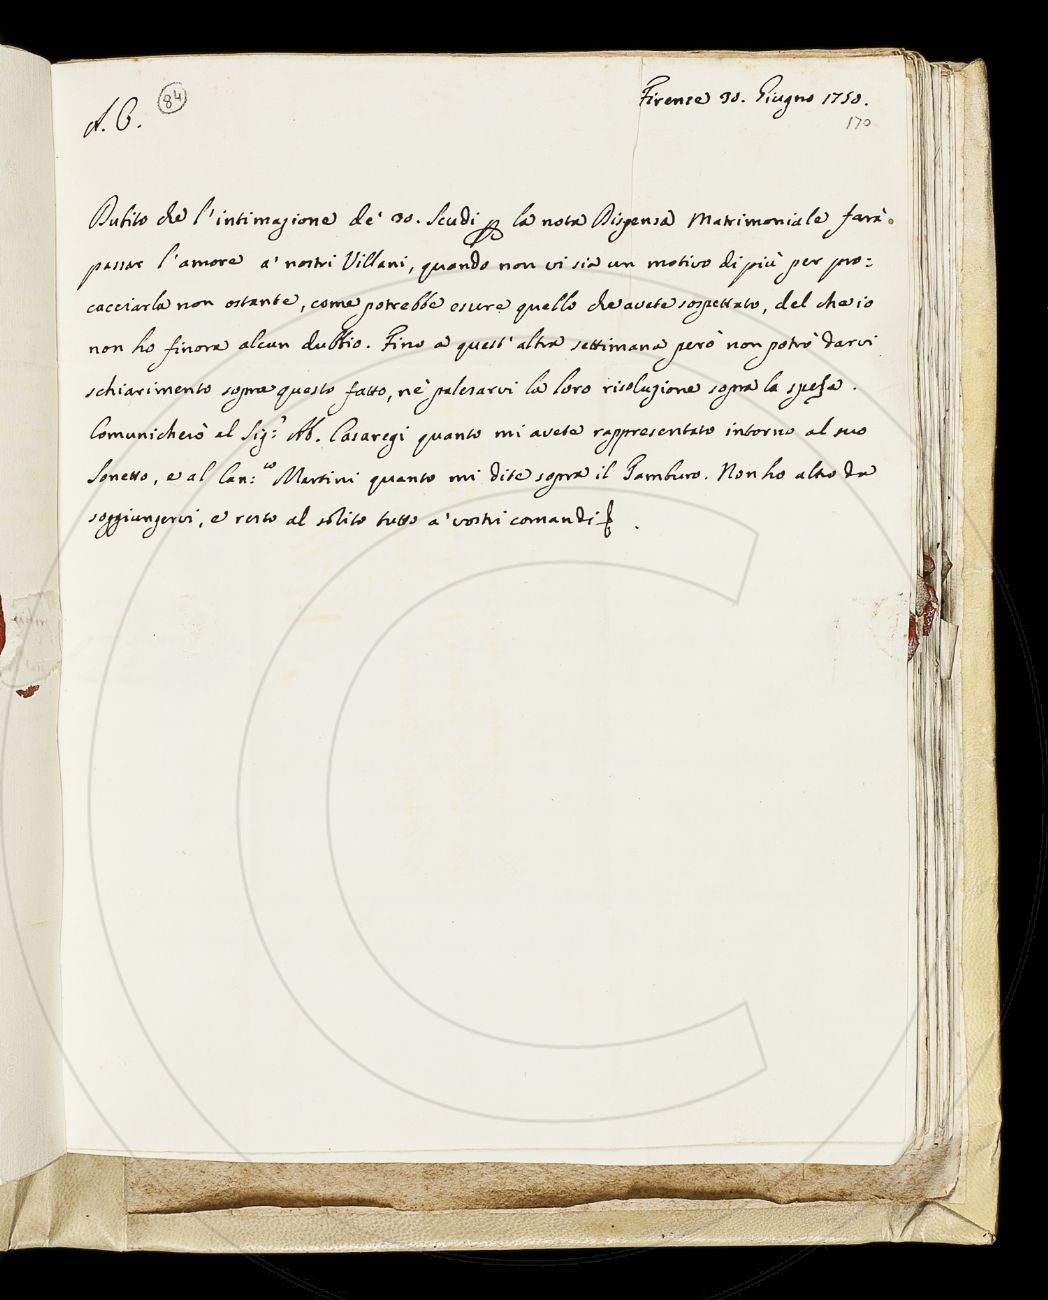 A. C.
84
Firenze 30. Giugno 1750.
170
Dubito che l'intimazione de' 30. Scudi p la nota Dispensa Matrimoniale farà
passar l'amore a' nostri Villani, quando non vi sia un motivo di più per pro:
cacciarla non ostante, come potrebbe essere quello che avete sospettato, del che io
non ho finora alcun dubbio. Fino a quest'altra settimana però non potrò darvi
schiarimento sopra questo fatto, nè palesarvi la loro risoluzione sopra la spesa.
Comunicherò al Sig:r Ab. Casaregi quanto mi avete rappresentato intorno al suo
Sonetto, e al Can:co Martini quanto mi dite sopra il Tamburo. Non ho altro da
soggiungervi, e resto al solito tutto a' vostri comandi